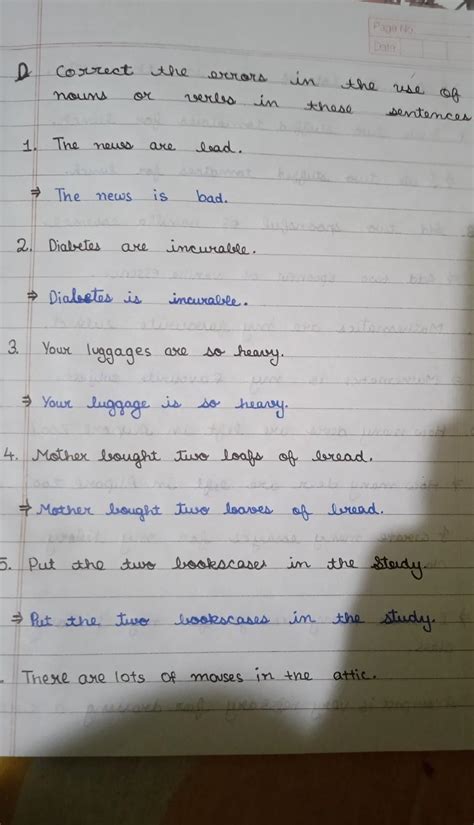 Page No.
Date
D Correct the errors in the use of
nouns or verbs in these sentences
1. The news are bad.
⇒ The news is bad.
2. Diabetes are incurable.
⇒ Diabetes is incurable.
3. Your luggages are so heavy.
⇒ Your luggage is so heavy.
4. Mother bought two loafs of bread.
⇒ Mother bought two loaves of bread.
5. Put the two bookscases in the study.
⇒ Put the two bookscases in the study.
. There are lots of mouses in the attic.